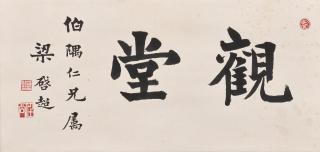 觀堂
伯隅仁兄屬
梁啓超